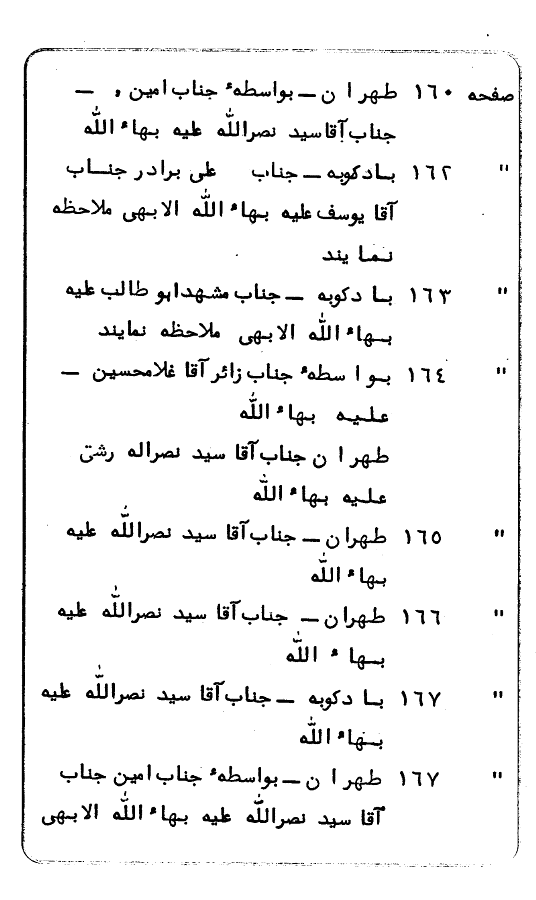 صفحه ١٦٠ طهران — بواسطهٔ جناب امین و —
جناب آقا سید نصرالله علیه بهاء الله
" ١٦٢ بادکوبه — جناب علی برادر جناب
آقا یوسف علیه بهاء الله الابهی ملاحظه
نمایند
" ١٦٣ بادکوبه — جناب مشهدابو طالب علیه
بهاء الله الابهی ملاحظه نمایند
" ١٦٤ بواسطهٔ جناب زائر آقا غلامحسین —
علیه بهاء الله
طهران جناب آقا سید نصراله رشتی
علیه بهاء الله
" ١٦٥ طهران — جناب آقا سید نصرالله علیه
بهاء الله
" ١٦٦ طهران — جناب آقا سید نصرالله علیه
بهاء الله
" ١٦٧ بادکوبه — جناب آقا سید نصرالله علیه
بهاء الله
" ١٦٧ طهران — بواسطهٔ جناب امین جناب
آقا سید نصرالله علیه بهاء الله الابهی